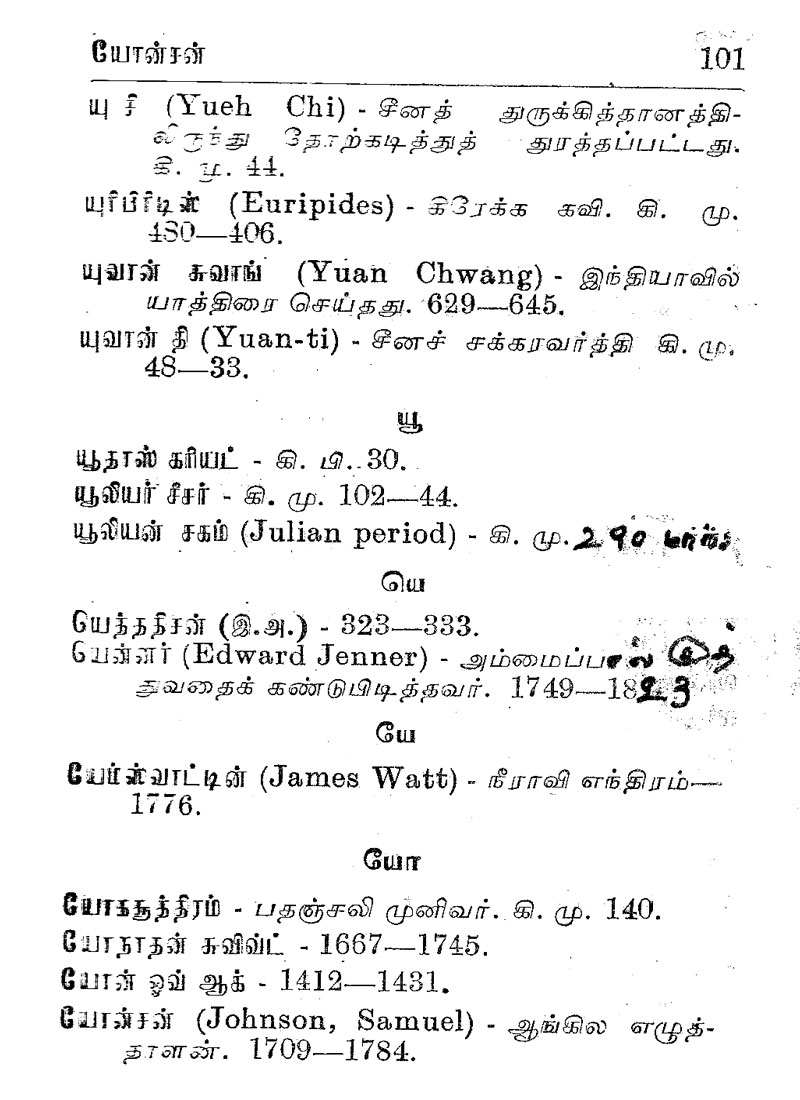 யோன்சன் 101
யு சி (Yueh Chi) - சீனத் துருக்கித்தானத்தி-
லிருந்து தோற்கடித்துத் துரத்தப்பட்டது.
கி. மு. 44.
யுரிபிரிடின் (Euripides) - கிரேக்க கவி. கி. மு.
480—406.
யுவான் சுவாங் (Yuan Chwang) - இந்தியாவில்
யாத்திரை செய்தது. 629—645.
யுவான் தி (Yuan-ti) - சீனச் சக்கரவர்த்தி கி. மு.
48—33.
யூ
யூதாஸ் கரியட் - கி. பி. 30.
யூலியர் சீசர் - கி. மு. 102—44.
யூலியன் சகம் (Julian period) - கி. மு.
யெ
யெத்ததிசன் (இ.அ.) - 323—333.
யென்னர் (Edward Jenner) - அம்மைப்பால் குத்
துவதைக் கண்டுபிடித்தவர். 1749—1823
யே
யேம்ஸ்வாட்டின் (James Watt) - நீராவி எந்திரம்—
1776.
யோ
யோகசூத்திரம் - பதஞ்சலி முனிவர். கி. மு. 140.
யோநாதன் சுவிவ்ட் - 1667—1745.
யோன் ஒவ் ஆக் - 1412—1431.
யோன்சன் (Johnson, Samuel) - ஆங்கில எழுத்-
தாளன். 1709—1784.